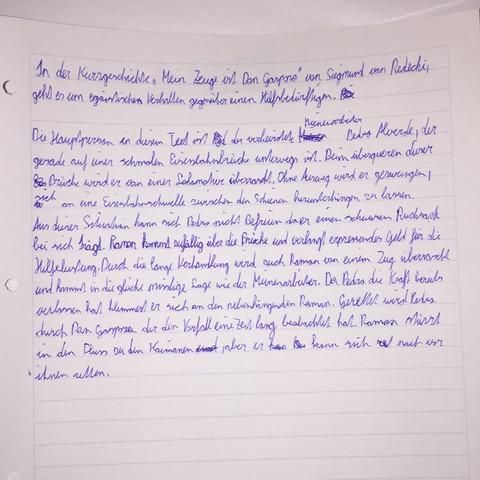 In der Kurzgeschichte „Mein Zeuge ist Don Gasparo" von Siegmund von Radecki,
geht es um egoistisches Verhalten gegenüber einen Hilfsbedürftigen.
Minenarbeiter
Die Hauptperson in diesem Text ist der verheiratete Pedro Alverde, der
gerade auf einer schmalen Eisenbahnbrücke unterwegs ist. Beim überqueren dieser
Brücke wird er von einer Lokomotive überrascht. Ohne Ausweg wird er gezwungen,
sich an eine Eisenbahnschwelle zwischen den Schienen herunterhängen zu lassen.
Aus dieser Situation kann sich Pedro nicht befreien da er einen schweren Rucksack
bei sich trägt. Ramon kommt zufällig über die Brücke und verlangt erpressendes Geld für die
Hilfeleistung. Durch die lange Verhandlung wird auch Ramon von einem Zug überrascht
und kommt in die gleiche missliche Lage wie der Minenarbeiter. Da Pedro die Kraft bereits
verlassen hat klammert er sich an den nebenhängenden Ramon. Gerettet wird Pedro
durch Don Gasparo der den Vorfall eine Zeit lang beobachtet hat. Ramon stürzt
in den Fluss zu den Kaimanen , aber er kann sich noch vor
ihnen retten.